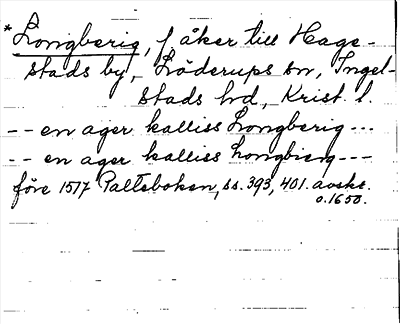 *Longberig, f. åker till Hage-
stads by, Löderups sn, Ingel-
stads hd, Krist. l.
-- en ager kalliss Longberig ---
-- en ager kalliss Longbierg ---
före 1517 Palteboken, ss. 393, 401. avskr.
o. 1650.